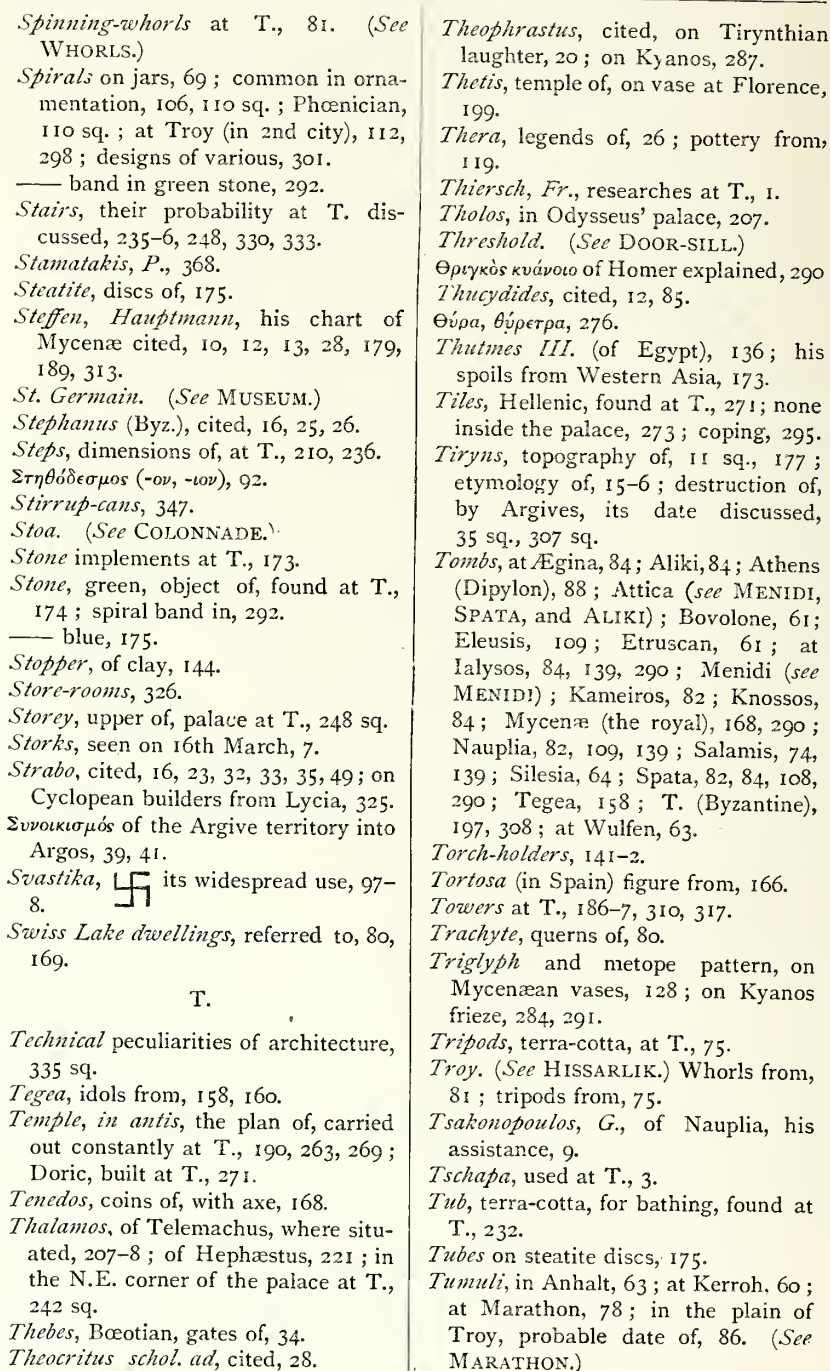 Spinning-whorls at T., 81. (See
WHORLS.)
Spirals on jars, 69 ; common in orna-
mentation, 106, 110 sq. ; Phœnician,
110 sq. ; at Troy (in 2nd city), 112,
298 ; designs of various, 301.
—— band in green stone, 292.
Stairs, their probability at T. dis-
cussed, 235-6, 248, 330, 333.
Stamatakis, P., 368.
Steatite, discs of, 175.
Steffen, Hauptmann, his chart of
Mycenæ cited, 10, 12, 13, 28, 179,
189, 313.
St. Germain. (See MUSEUM.)
Stephanus (Byz.), cited, 16, 25, 26.
Steps, dimensions of, at T., 210, 236.
Στηθόδεσμος (-ον, -ιον), 92.
Stirrup-cans, 347.
Stoa. (See COLONNADE.)
Stone implements at T., 173.
Stone, green, object of, found at T.,
174 ; spiral band in, 292.
—— blue, 175.
Stopper, of clay, 144.
Store-rooms, 326.
Storey, upper of, palace at T., 248 sq.
Storks, seen on 16th March, 7.
Strabo, cited, 16, 23, 32, 33, 35, 49 ; on
Cyclopean builders from Lycia, 325.
Συνοικισμός of the Argive territory into
Argos, 39, 41.
Svastika, 卐 its widespread use, 97-
8.
Swiss Lake dwellings, referred to, 80,
169.
T.
Technical peculiarities of architecture,
335 sq.
Tegea, idols from, 158, 160.
Temple, in antis, the plan of, carried
out constantly at T., 190, 263, 269 ;
Doric, built at T., 271.
Tenedos, coins of, with axe, 168.
Thalamos, of Telemachus, where situ-
ated, 207-8 ; of Hephæstus, 221 ; in
the N.E. corner of the palace at T.,
242 sq.
Thebes, Bœotian, gates of, 34.
Theocritus schol. ad, cited, 28.
Theophrastus, cited, on Tirynthian
laughter, 20 ; on Kyanos, 287.
Thetis, temple of, on vase at Florence,
199.
Thera, legends of, 26 ; pottery from,
119.
Thiersch, Fr., researches at T., 1.
Tholos, in Odysseus' palace, 207.
Threshold. (See DOOR-SILL.)
Θριγκὸς κυάνοιο of Homer explained, 290
Thucydides, cited, 12, 85.
Θύρα, θύρετρα, 276.
Thutmes III. (of Egypt), 136 ; his
spoils from Western Asia, 173.
Tiles, Hellenic, found at T., 271 ; none
inside the palace, 273 ; coping, 295.
Tiryns, topography of, 11 sq., 177 ;
etymology of, 15-6 ; destruction of,
by Argives, its date discussed,
35 sq., 307 sq.
Tombs, at Ægina, 84 ; Aliki, 84 ; Athens
(Dipylon), 88 ; Attica (see MENIDI,
SPATA, and ALIKI) ; Bovolone, 61 ;
Eleusis, 109 ; Etruscan, 61 ; at
Ialysos, 84, 139, 290 ; Menidi (see
MENIDI) ; Kameiros, 82 ; Knossos,
84 ; Mycenæ (the royal), 168, 290 ;
Nauplia, 82, 109, 139 ; Salamis, 74,
139 ; Silesia, 64 ; Spata, 82, 84, 108,
290 ; Tegea, 158 ; T. (Byzantine),
197, 308 ; at Wulfen, 63.
Torch-holders, 141-2.
Tortosa (in Spain) figure from, 166.
Towers at T., 186-7, 310, 317.
Trachyte, querns of, 80.
Triglyph and metope pattern, on
Mycenæan vases, 128 ; on Kyanos
frieze, 284, 291.
Tripods, terra-cotta, at T., 75.
Troy. (See HISSARLIK.) Whorls from,
81 ; tripods from, 75.
Tsakonopoulos, G., of Nauplia, his
assistance, 9.
Tschapa, used at T., 3.
Tub, terra-cotta, for bathing, found at
T., 232.
Tubes on steatite discs, 175.
Tumuli, in Anhalt, 63 ; at Kerroh, 60 ;
at Marathon, 78 ; in the plain of
Troy, probable date of, 86. (See
MARATHON.)